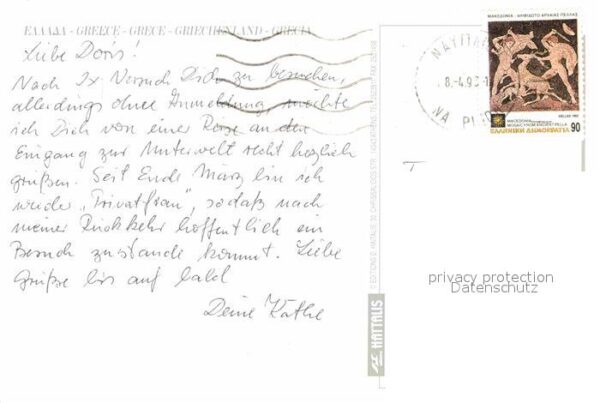 ΕΛΛΑΔΑ - GREECE - GRECE - GRIECHENLAND - GRECIA
Liebe Doris!
Nach 3x Versuch Dich zu besuchen,
allerdings ohne Anmeldung, möchte
ich Dich von einer Reise an den
Eingang zur Unterwelt recht herzlich
grüßen. Seit Ende März bin ich
wieder „Privatfrau", sodaß nach
meiner Rückkehr hoffentlich ein
Besuch zustande kommt. Liebe
Grüße bis auf bald
Deine Käthe
HAITALIS
ΜΑΚΕΔΟΝΙΑ
MOSAIC FROM ANCIENT PELLA
ΕΛΛΗΝΙΚΗ ΔΗΜΟΚΡΑΤΙΑ
90
privacy protection
Datenschutz